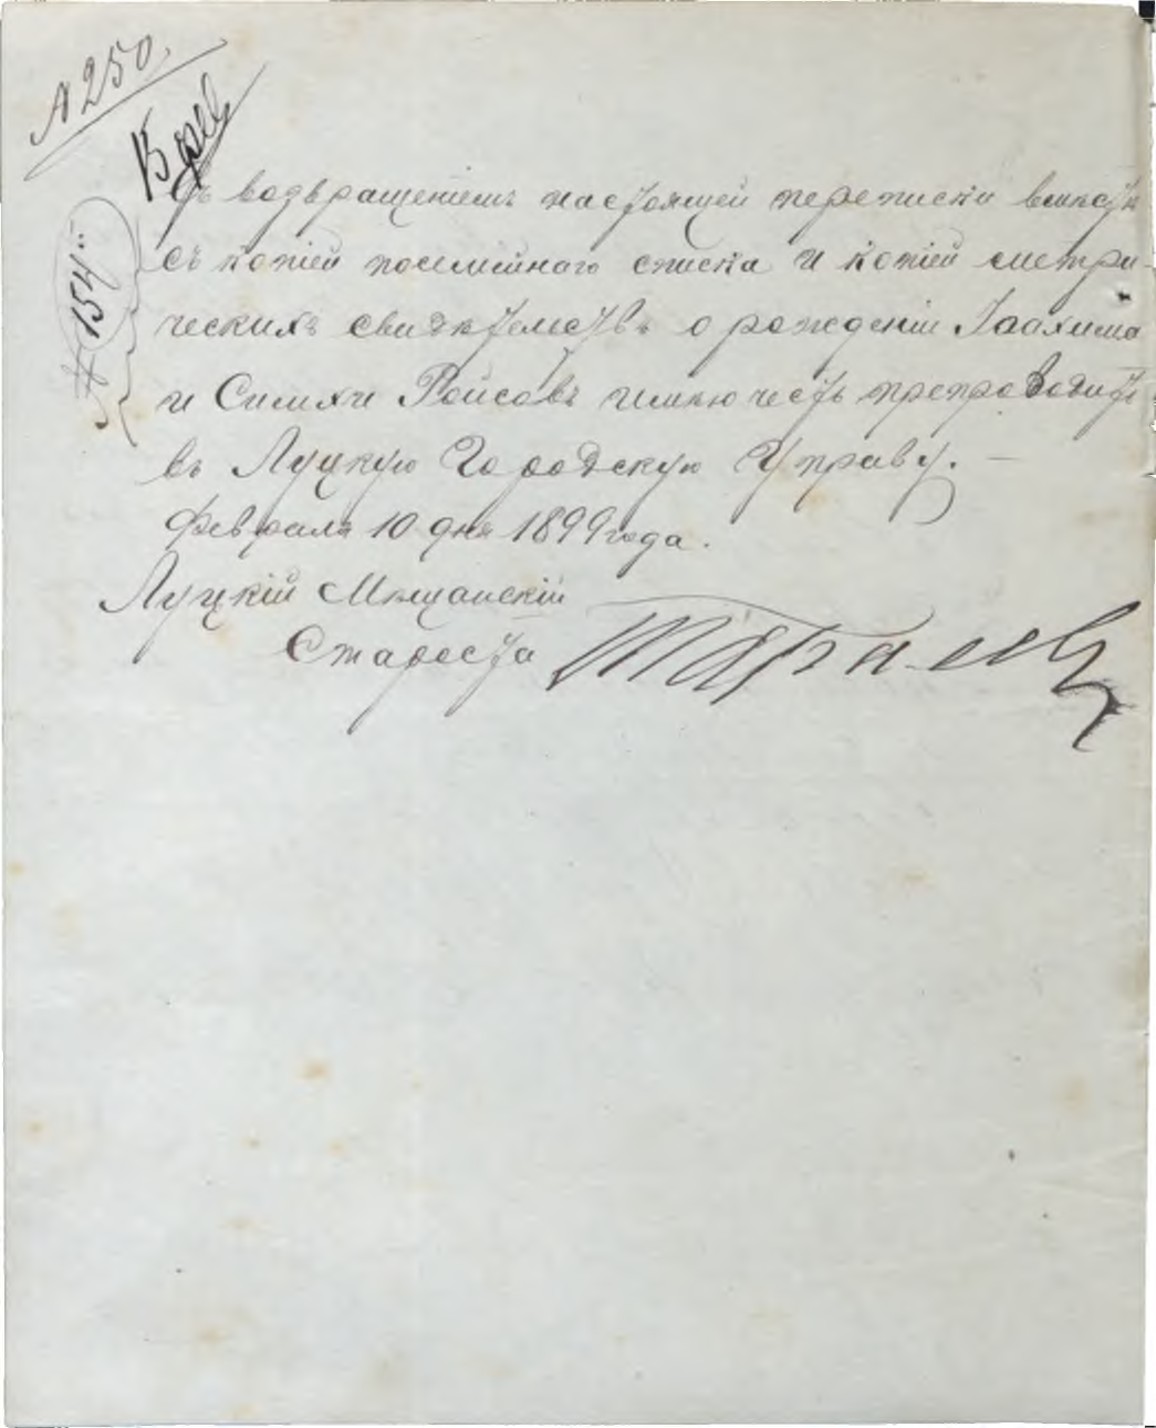 № 250.
Съ возвращеніемъ настоящей переписки вмѣстѣ
съ копіей посемейнаго списка и копіей метри-
ческихъ свидѣтельствъ о рожденіи Іоахима
и Симхи Ройсовъ имѣю честь препроводить
въ Луцкую Городскую Управу. —
Февраля 10 дня 1899 года.
Луцкій Мѣщанскій
Староста
# 154